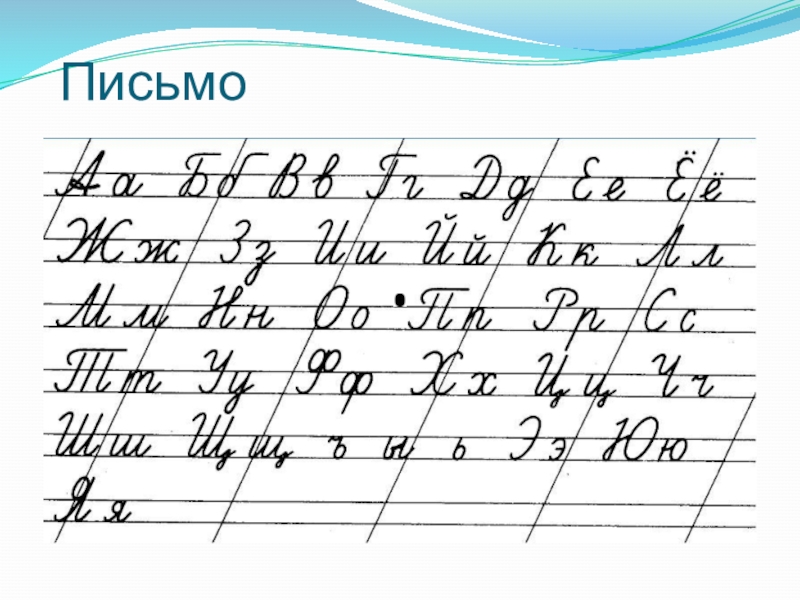 Письмо
Аа Бб Вв Гг Дд Ее Ёё
Жж Зз Ии Йй Кк Лл
Мм Нн Оо •Пп Рр Сс
Тт Уу Фф Хх Цц Чч
Шш Щщ ъ ы ь Ээ Юю
Яя